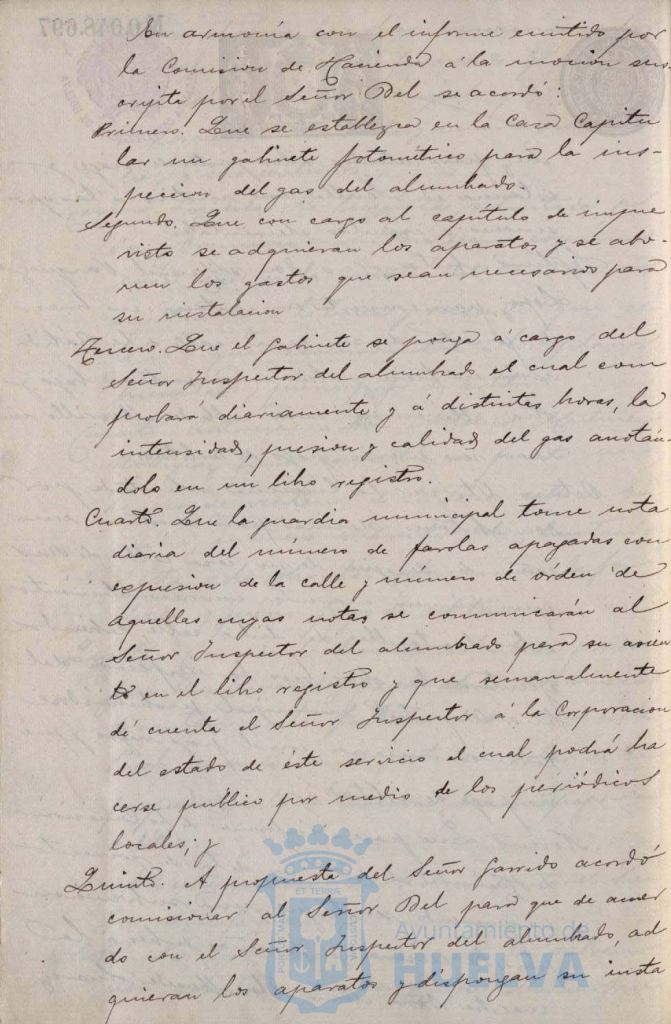 En armonía con el informe emitido por
la Comision de Hacienda á la mocion sus-
cripta por el Señor Bel se acordó:
Primero. Que se establezca en la Casa Capitu
lar un gabinete fotométrico para la ins-
peccion del gas del alumbrado.
Segundo. Que con cargo al capítulo de impre
visto se adquieran los aparatos y se abo-
nen los gastos que sean necesarios para
su instalacion
Tercero. Que el Gabinete se ponga á cargo del
Señor Inspector del alumbrado el cual com
probará diariamente y á distintas horas, la
intensidad, presion y calidad del gas anotán-
dolo en un libro registro.
Cuarto. Que la guardia municipal tome nota
diaria del número de farolas apagadas con
expresion de la calle y número de órden de
aquellas cuyas notas se comunicarán al
Señor Inspector del alumbrado para su asien
to en el libro registro y que semanalmente
dé cuenta el Señor Inspector á la Corporacion
del estado de éste servicio el cual podrá ha
cerse público por medio de los periódicos
locales; y
Quinto. A propuesta del Señor Garrido acordó
comisionar al Señor Bel para que de acuer
do con el Señor Inspector del alumbrado, ad
quieran los aparatos y dispongan su insta
Ayuntamiento de
HUELVA